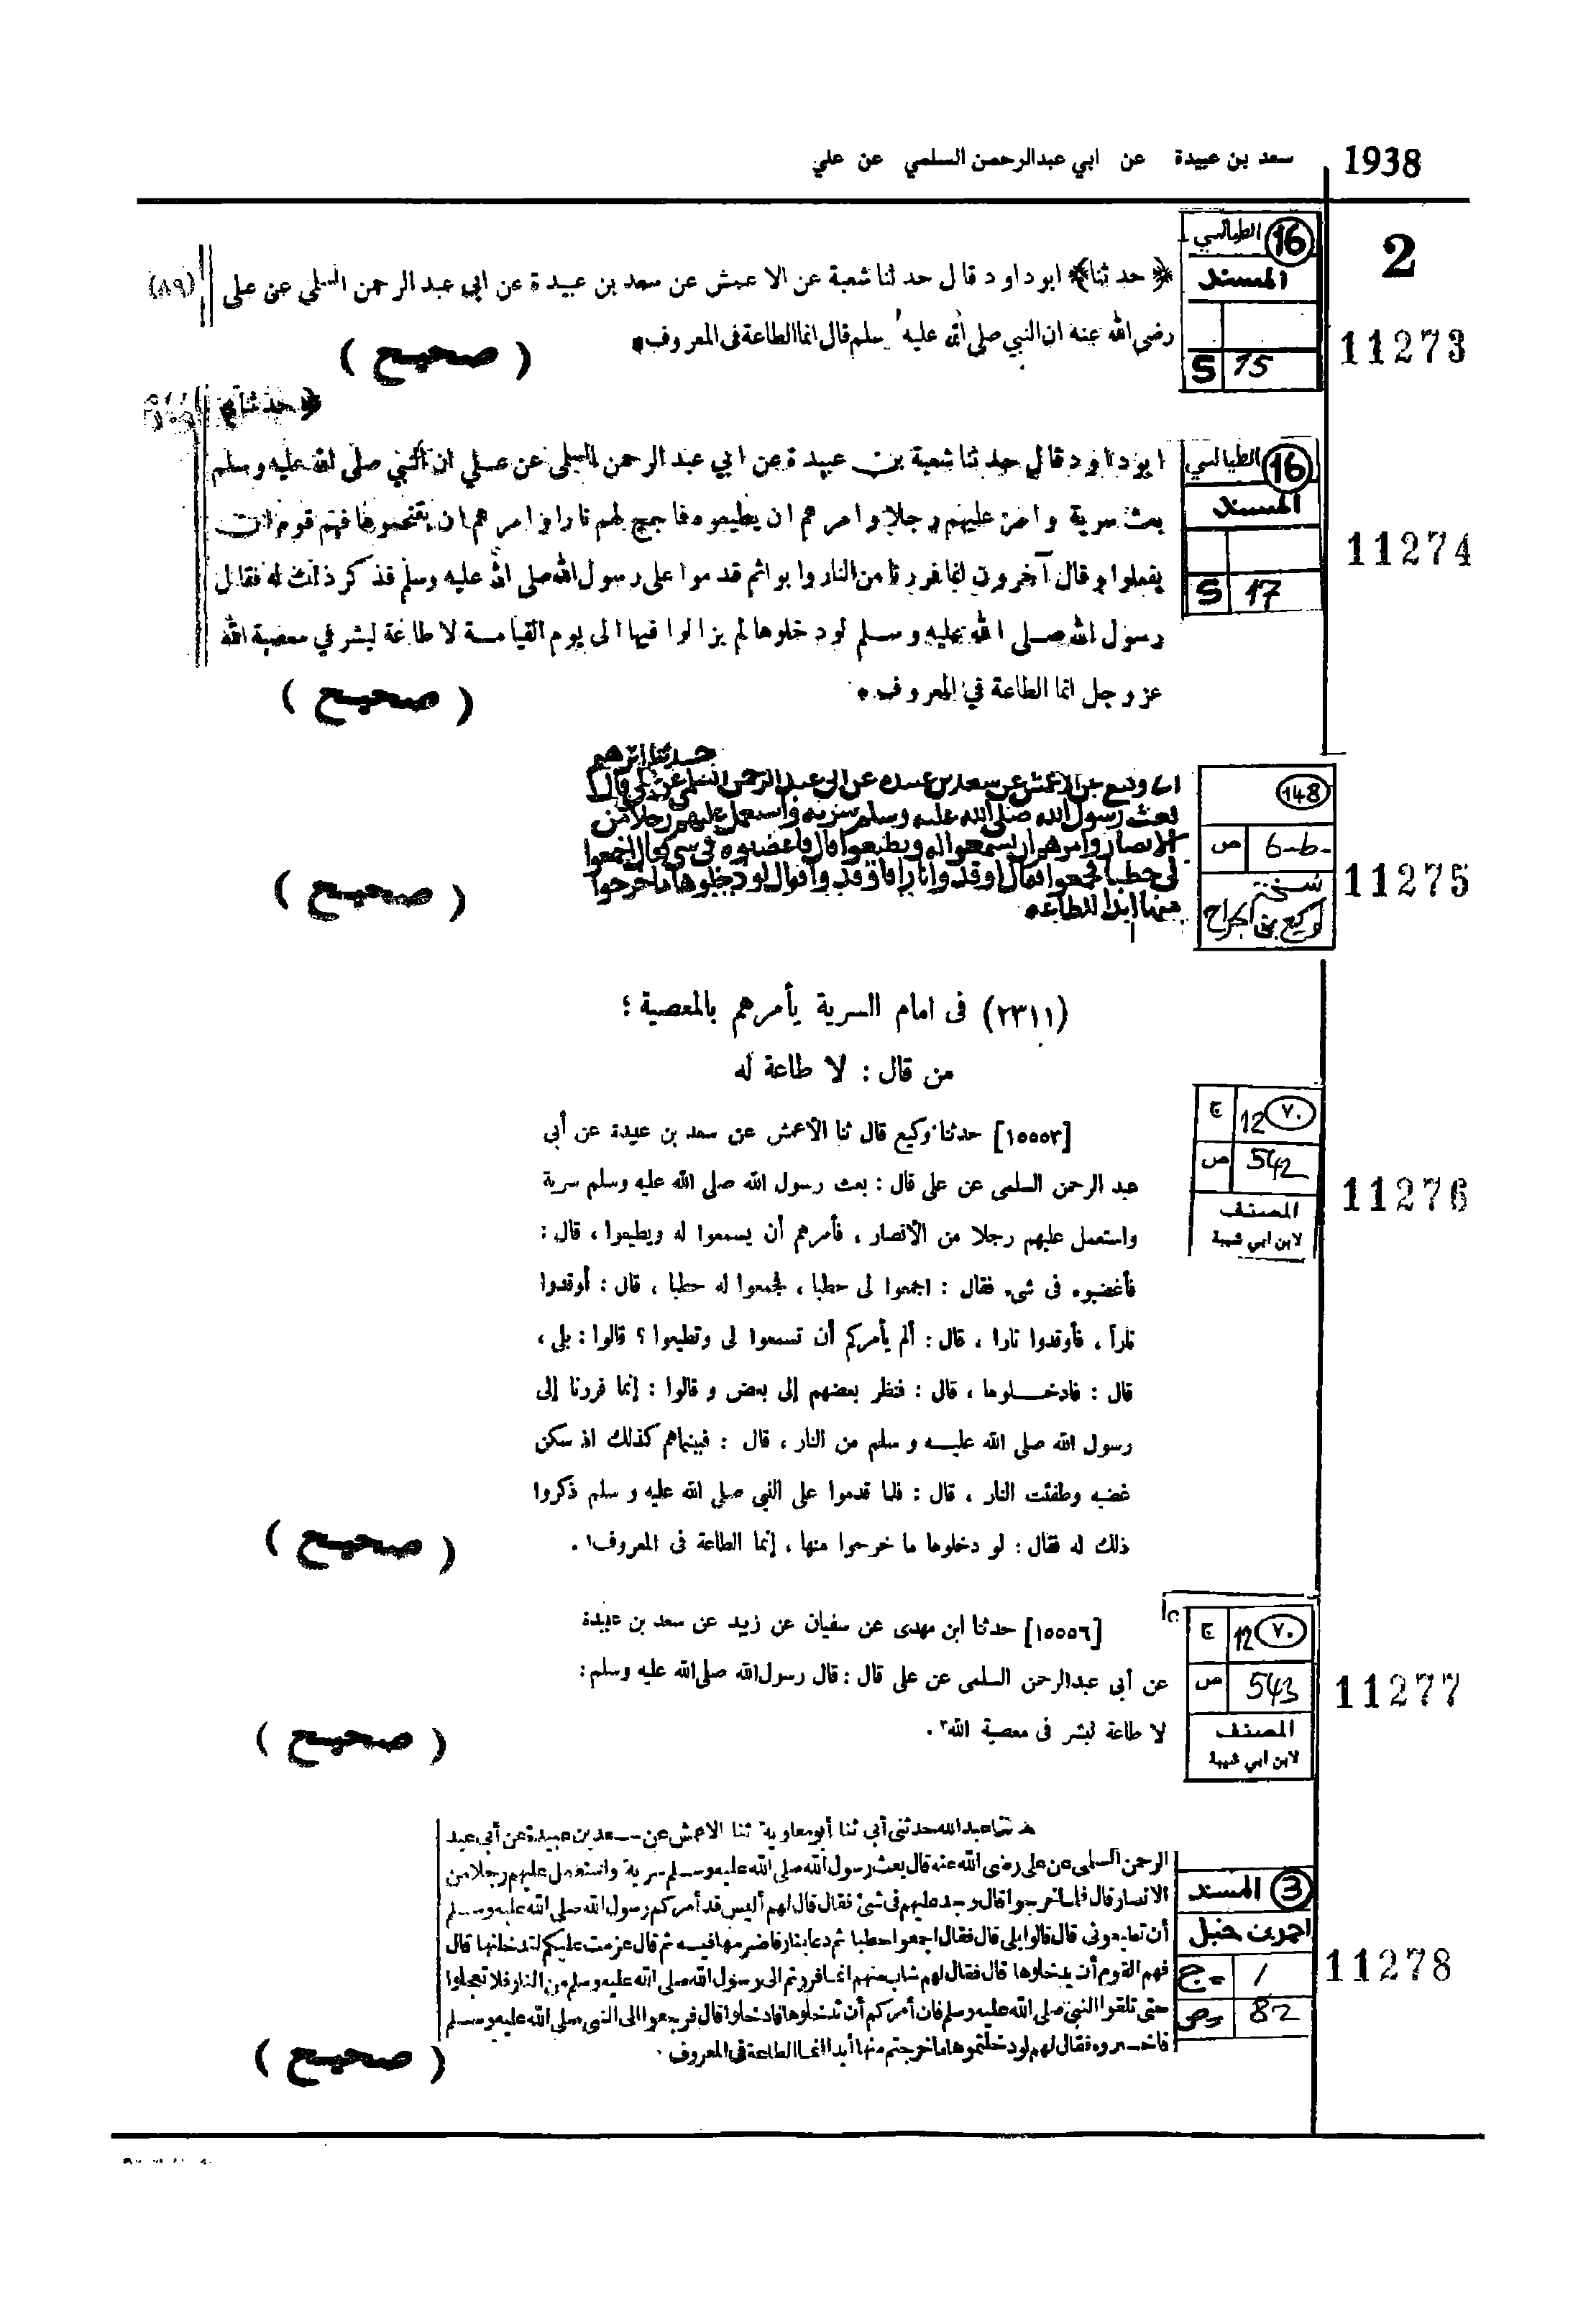 1938 سعد بن عبيدة عن ابي عبدالرحمن السلمي عن علي
2
16 الطيالسي
المسند
S 15
11273
﴿ حدثنا ﴾ ابو داود قال حدثنا شعبة عن الاعمش عن سعد بن عبيدة عن ابي عبد الرحمن السلمي عن على (٨٩)
رضى الله عنه ان النبي صلى الله عليه وسلم قال انما الطاعة فى المعروف •
( صحيح )
﴿ حدثنا ﴾
16 الطيالسي
المسند
S 17
11274
ابو داود قال حدثنا شعبة بن عبيدة عن ابي عبد الرحمن السلمى عن علي ان النبي صلى الله عليه وسلم
بعث سرية وامر عليهم رجلا وامرهم ان يطيعوه فاجمع لهم نارا وامرهم ان يقتحموها فهم قوم ان
يفعلوا وقال آخرون انما فررنا من النار وابوا ثم قدموا على رسول الله صلى الله عليه وسلم فذكر ذلك له فقال
رسول الله صلى الله عليه وسلم لو دخلوها لم يزالوا فيها الى يوم القيامة لا طاعة لبشر في معصية الله
عز وجل انما الطاعة في المعروف •
( صحيح )
148
ص 6-ب
نسخة
وكيع بن الجراح
11275
حدثنا ابرهيم
وكيع عن الاعمش عن سعد بن عبيده عن ابي عبد الرحمن السلمي عن علي قال
بعث رسول الله صلى الله عليه وسلم سريه واستعمل عليهم رجلا من
الانصار وامرهم ان يسمعوا له ويطيعوا قال فاغضبوه في شي فقال اجمعوا
لي حطبا فجمعوا فقال اوقدوا نارا فاوقدوا فقال لو دخلوها ما خرجوا
منها ابدا الطاعه
( صحيح )
(٢٣١١) فى امام السرية يأمرهم بالمعصية ؛
من قال : لا طاعة له
٧٠ 12 ج
542 ص
المصنف
لابن ابي شيبة
11276
[١٥٥٥٣] حدثنا وكيع قال ثنا الأعمش عن سعد بن عبيدة عن أبي
عبد الرحمن السلمى عن على قال : بعث رسول الله صلى الله عليه وسلم سرية
واستعمل عليهم رجلا من الأنصار ، فأمرهم أن يسمعوا له ويطيعوا ، قال :
فأغضبوه فى شىء فقال : اجمعوا لى حطبا ، فجمعوا له حطبا ، قال : أوقدوا
ناراً ، فأوقدوا نارا ، قال : ألم يأمركم أن تسمعوا لى وتطيعوا ؟ قالوا : بلى ،
قال : فادخلوها ، قال : فنظر بعضهم إلى بعض و قالوا : إنما فررنا إلى
رسول الله صلى الله عليه و سلم من النار ، قال : فبينماهم كذلك اذ سكن
غضبه وطفئت النار ، قال : فلما قدموا على النبى صلى الله عليه و سلم ذكروا
ذلك له فقال : لو دخلوها ما خرجوا منها ، إنما الطاعة فى المعروف١ .
( صحيح )
٧٠ 12 ج
543 ص
المصنف
لابن ابي شيبة
11277
[١٥٥٥٦] حدثنا ابن مهدى عن سفيان عن زبيد عن سعد بن عبيدة
عن أبى عبدالرحمن السلمى عن على قال : قال رسول الله صلى الله عليه وسلم :
لا طاعة لبشر فى معصية الله٣ .
( صحيح )
3 المسند
احمد بن حنبل
ج 1
ص 82
11278
حدثنا عبدالله حدثنى أبى ثنا أبو معاوية ثنا الاعمش عن سعد بن عبيدة عن أبى عبد
الرحمن السلمى عن على رضى الله عنه قال بعث رسول الله صلى الله عليه وسلم سرية واستعمل عليهم رجلا من
الانصار قال فلما خرجوا قال وجد عليهم فى شئ فقال قال لهم أليس قد أمركم رسول الله صلى الله عليه وسلم
أن تطيعونى قال قالوا بلى قال فقال اجمعوا حطبا ثم دعا بنار فاضرمها فيه ثم قال عزمت عليكم لتدخلنها قال
فهم القوم أن يدخلوها قال فقال لهم شاب منهم انما فررتم الى رسول الله صلى الله عليه وسلم من النار فلا تعجلوا
حتى تلقوا النبى صلى الله عليه وسلم فان أمركم أن تدخلوها فادخلوا قال فرجعوا الى النبى صلى الله عليه وسلم
فاخبروه فقال لهم لو دخلتموها ما خرجتم منها أبدا انما الطاعة فى المعروف .
( صحيح )